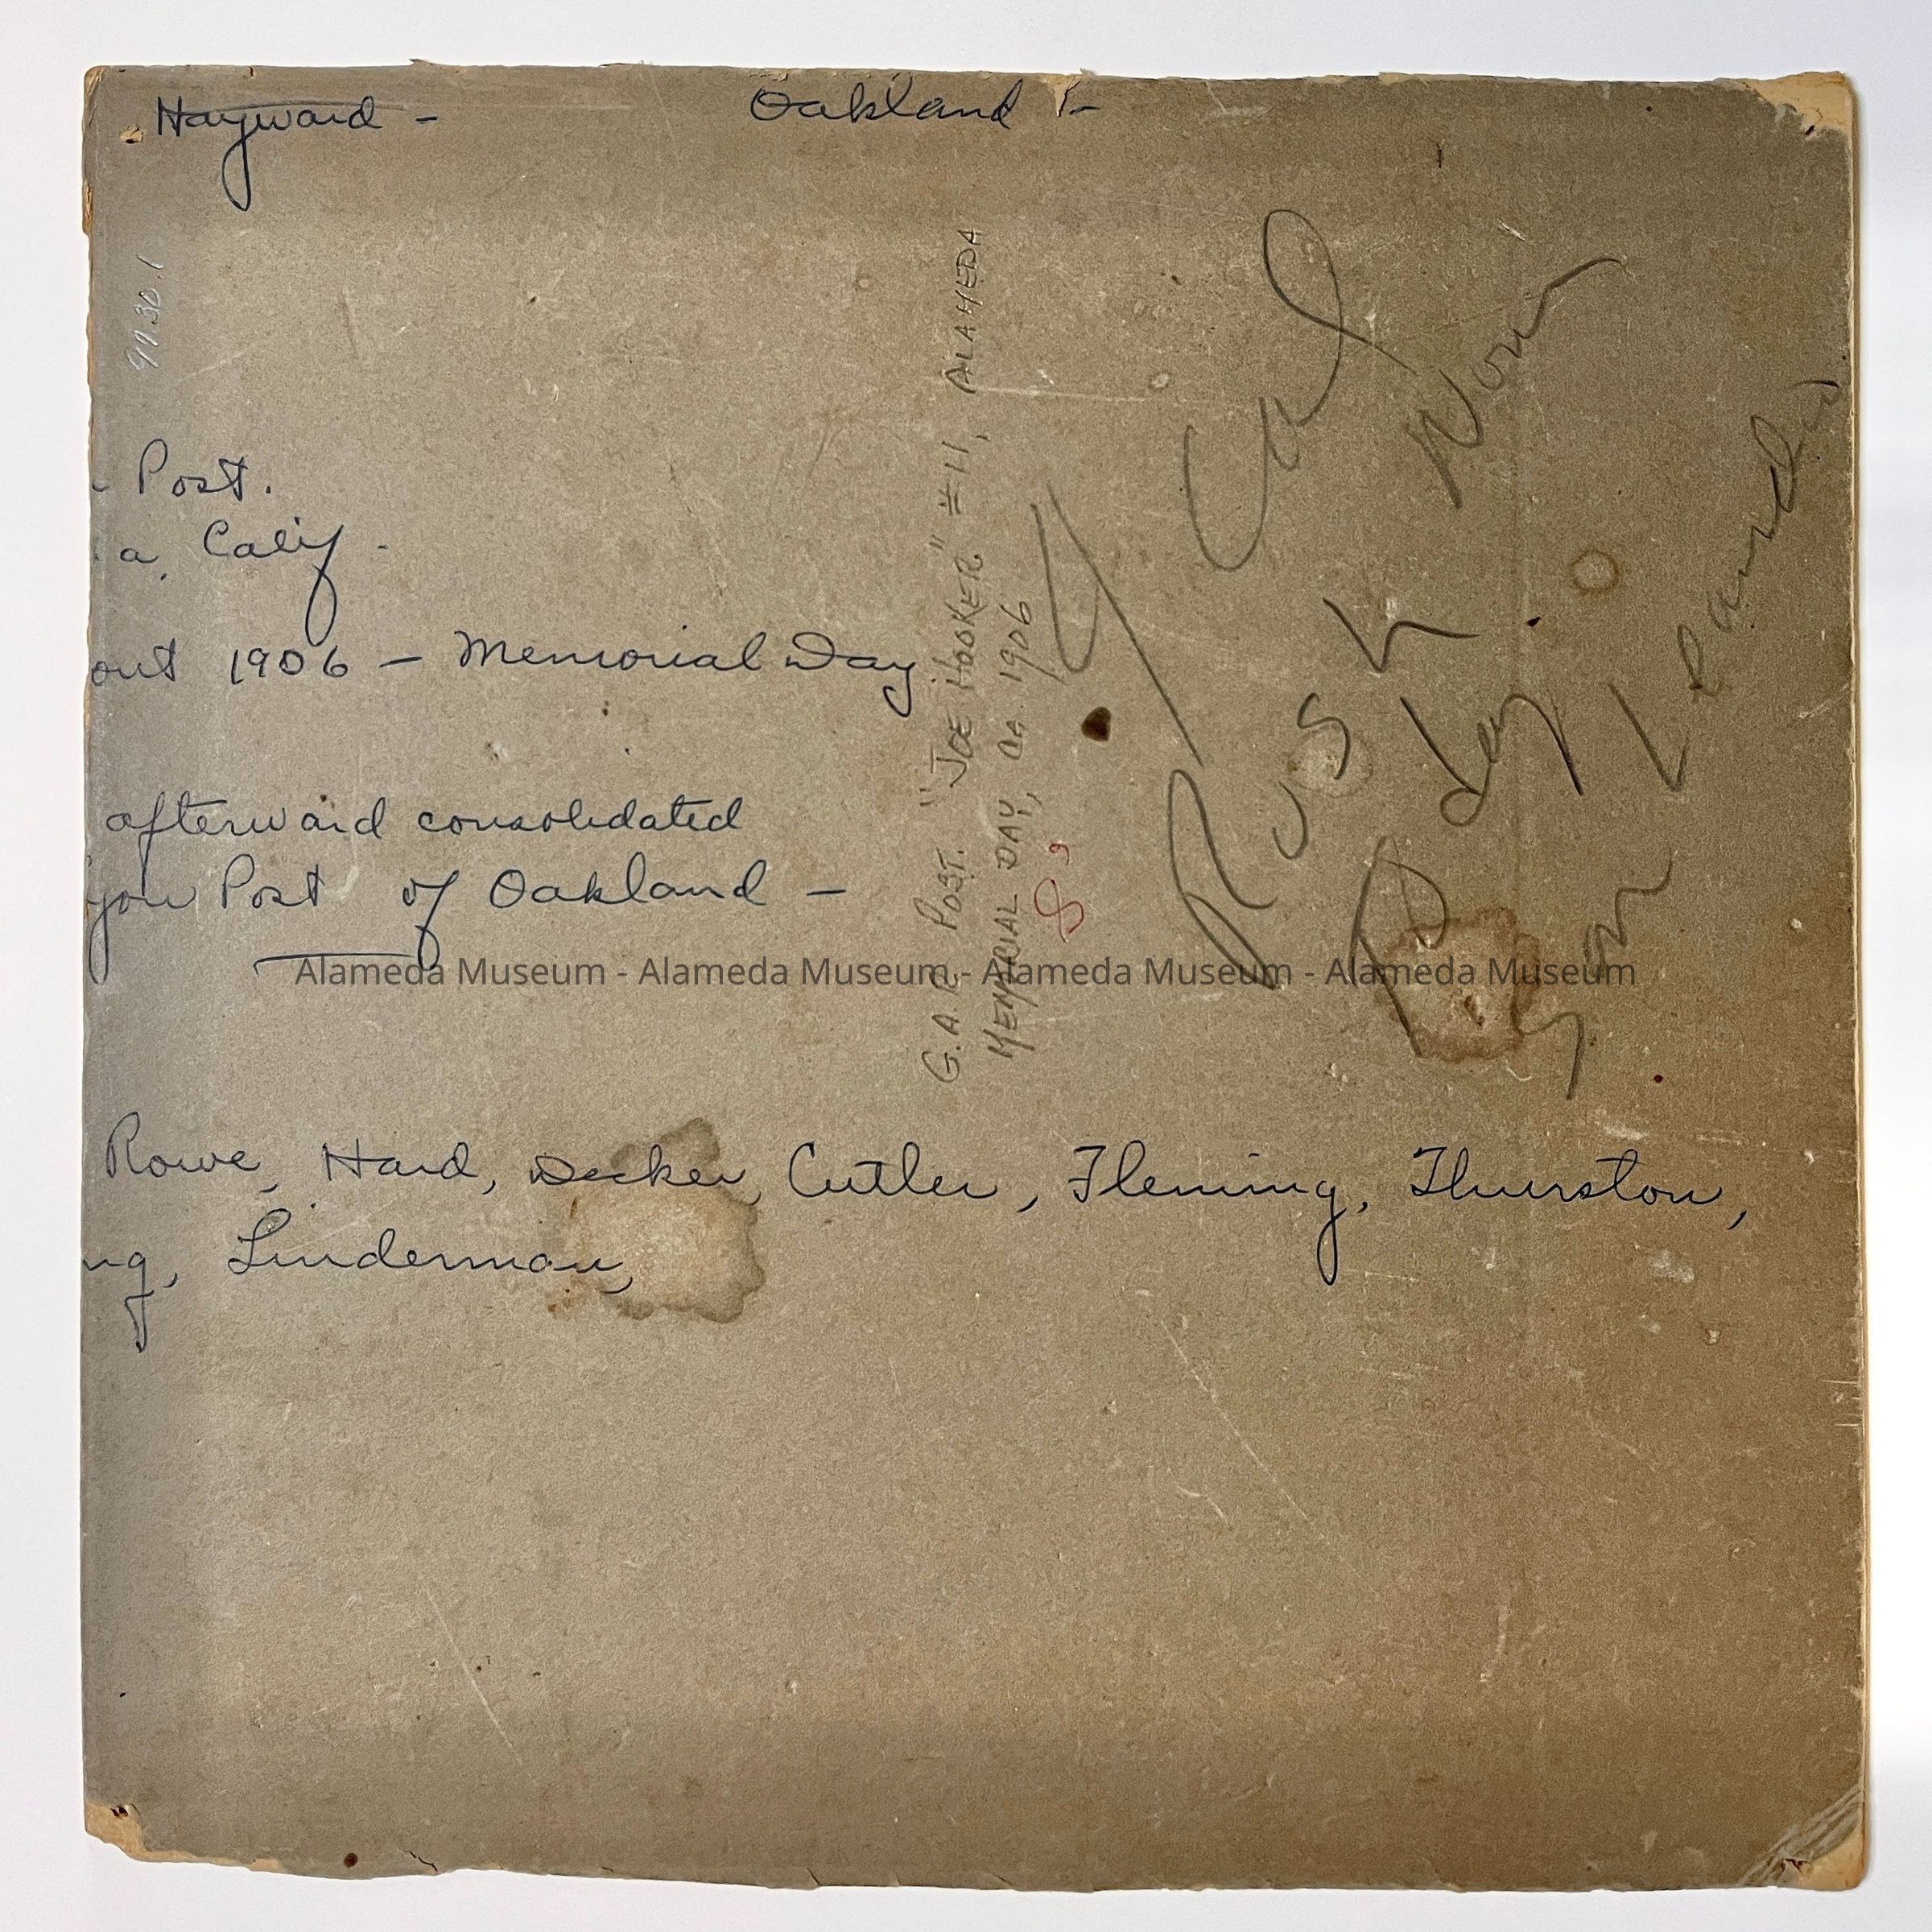 Hayward - Oakland -
Post.
a, Calif.
out 1906 - Memorial Day
afterward consolidated
you Post of Oakland -
Rowe, Hard, Decker, Cutler, Fleming, Thurston,
ng, Linderman,
G.A.R. POST. "JOE HOOKER" #11, ALAMEDA
MEMORIAL DAY, CA. 1906
Cal
Rush
San Leandro
Alameda Museum - Alameda Museum - Alameda Museum - Alameda Museum